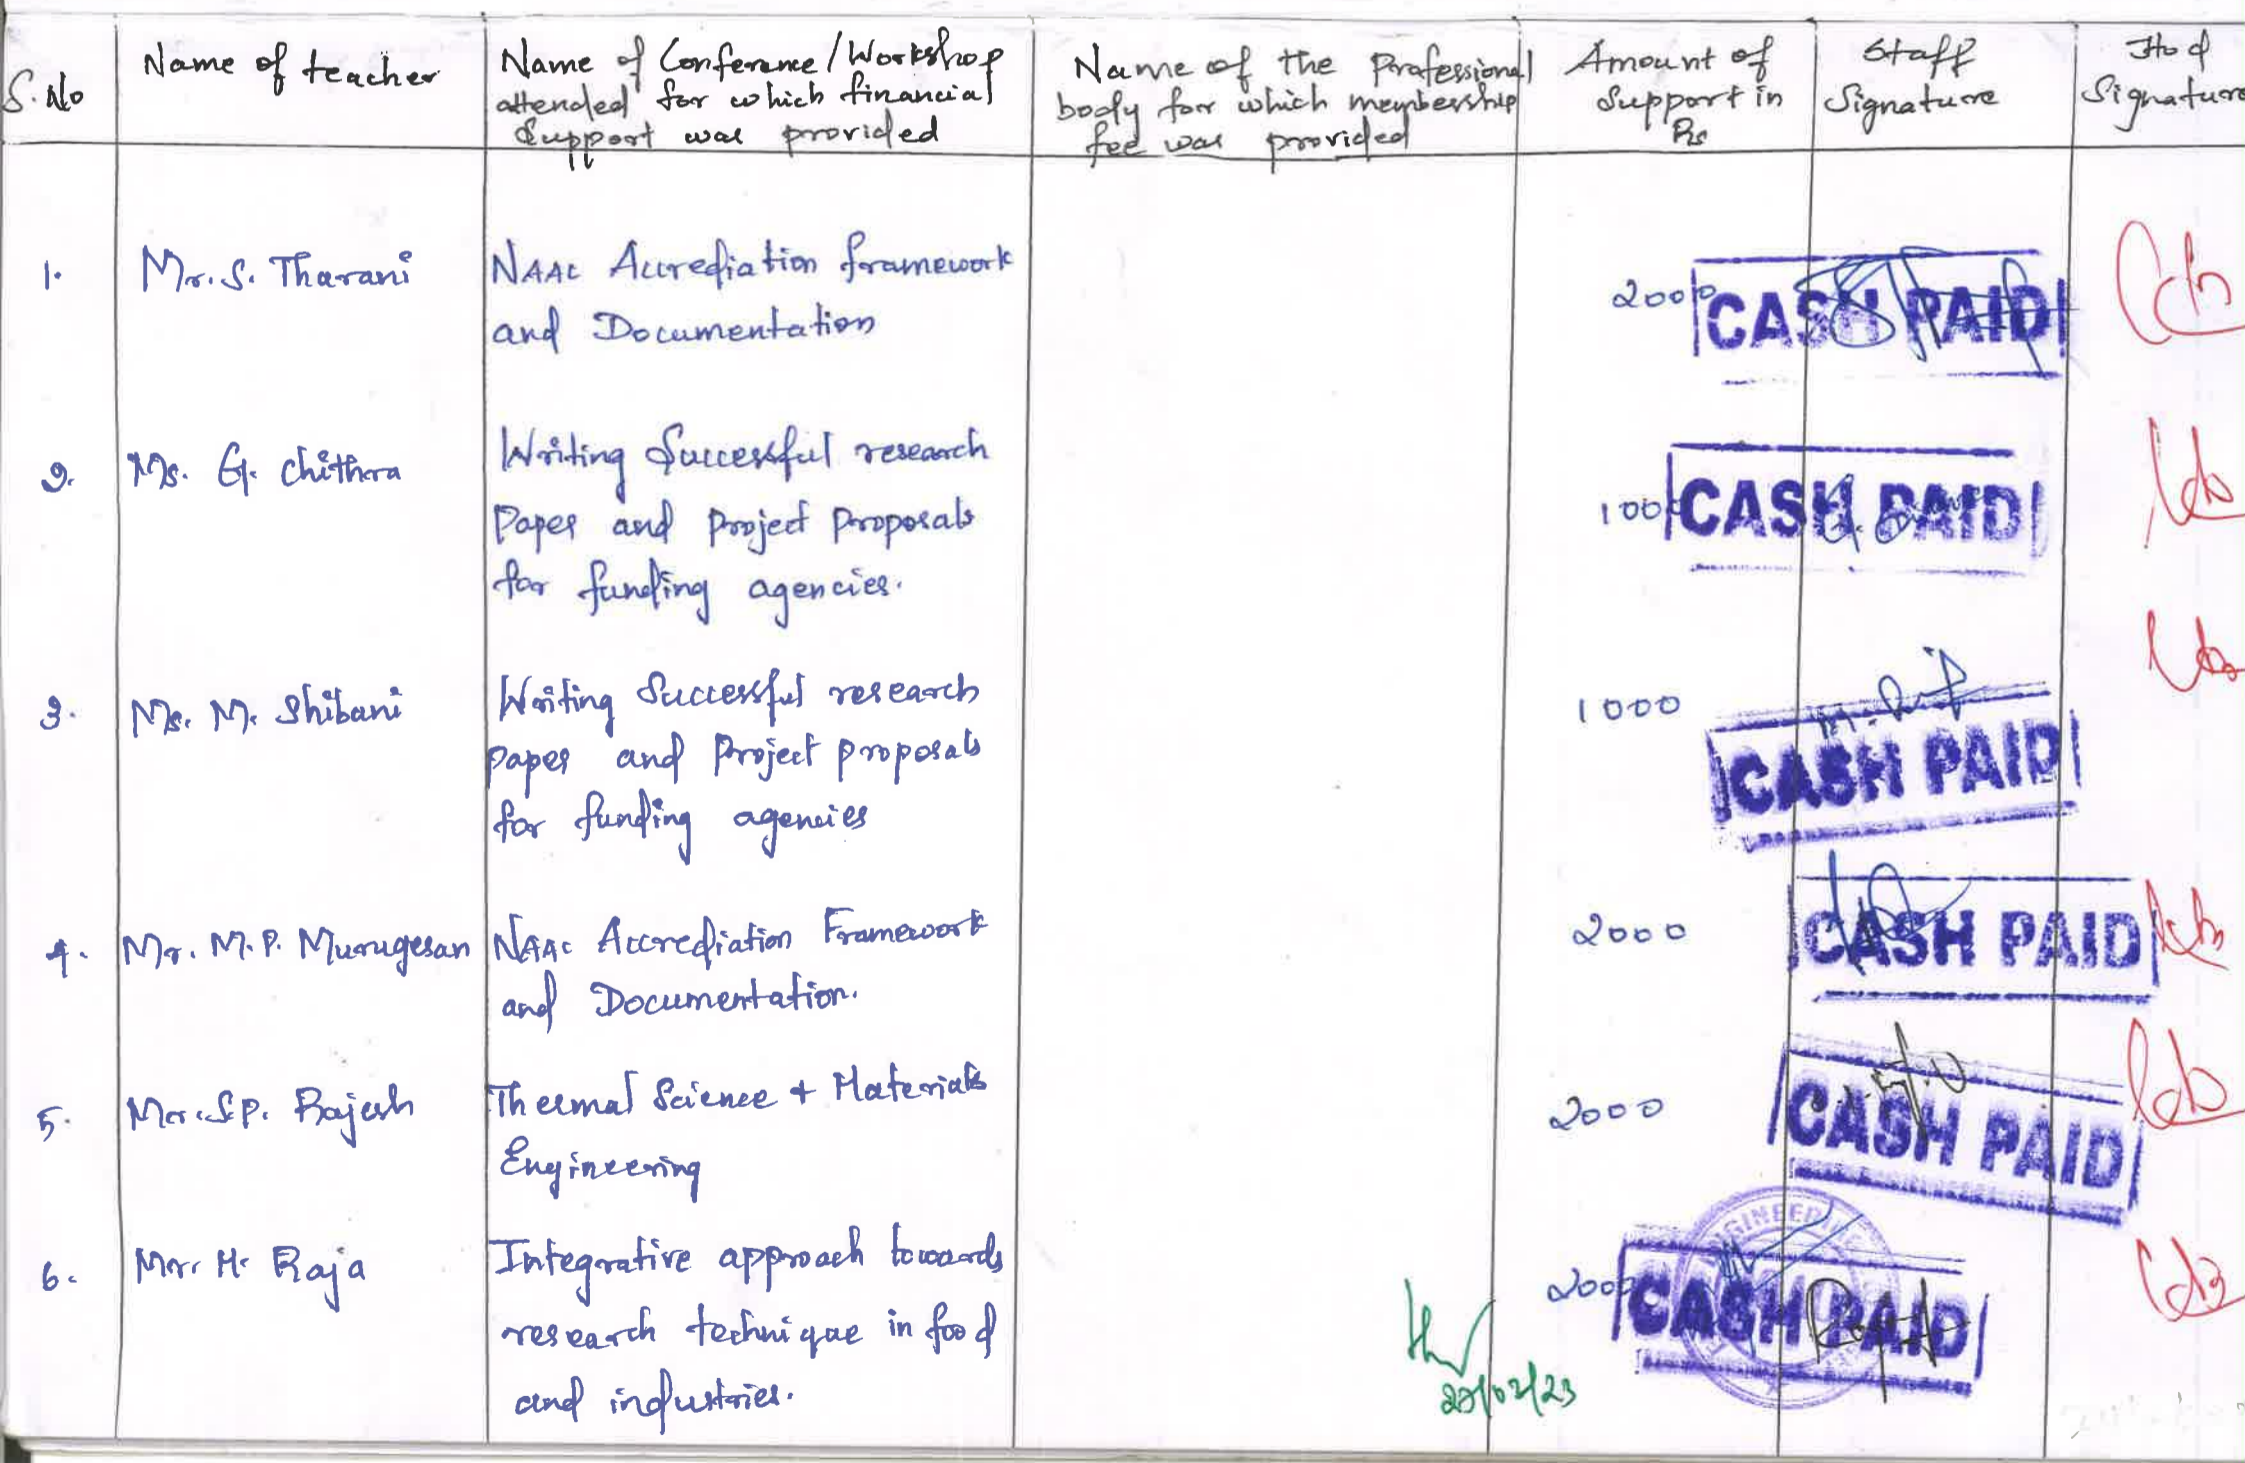 S.No
Name of teacher
Name of Conference/Workshop
attended for which financial
Support was provided
Name of the Professional
body for which membership
fee was provided
Amount of
Support in
Rs
Staff
Signature
Hod
Signature
1. Mr. S. Tharani NAAC Accrediation framework 2000
and Documentation
CASH PAID
2. Ms. G. Chithra Writing Successful research
Paper and Project Proposals 1000 CASH PAID
for funding agencies.
3. Ms. M. Shibani Writing Successful research 1000
Paper and Project proposals
for funding agencies
CASH PAID
4. Mr. M.P. Murugesan NAAC Accrediation Framework 2000 CASH PAID
and Documentation.
5. Mr. S.P. Rajesh Thermal Science + Materials 2000 CASH PAID
Engineering
6. Mr. H. Raja Integrative approach towards 2000 CASH PAID
research technique in food
and industries.